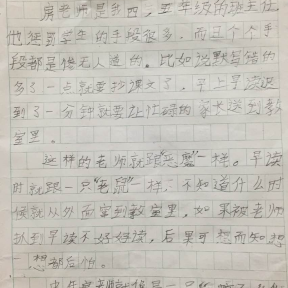 房老师是我四、五年级的班主任
他惩罚学生的手段很多，而且个个手
段都是惨无人道的。比如说默写错的
多了一点就要抄课文了，早上早读迟
到了一分钟就要让忙碌的家长送到教
室里。
这样的老师就跟"恶魔"一样。早读
时就跟一只"老鼠"一样，不知道什么时
候就从外面窜到教室里，如果被老师
抓到早读不好好读，后果可想而知想
一想都后怕。
老师就像是一只